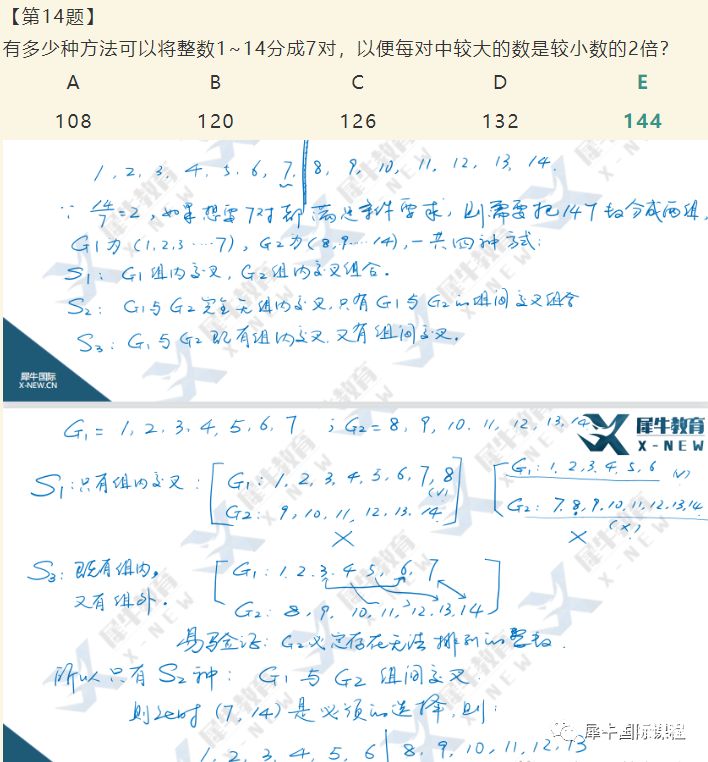 【第14题】
有多少种方法可以将整数1~14分成7对，以便每对中较大的数是较小数的2倍？
A B C D E
108 120 126 132 144
1, 2, 3, 4, 5, 6, 7, 8, 9, 10, 11, 12, 13, 14.
∵ 14/7=2，如果想要7对都满足条件要求，则需要把14个数分成两组，
G1为（1,2,3……7），G2为（8,9……14），一共四种方式：
S1：G1组内交叉，G2组内交叉组合。
S2：G1与G2完全无组内交叉，只有G1与G2的组间交叉组合
S3：G1与G2既有组内交叉又有组间交叉。
犀牛国际
X-NEW.CN
犀牛教育
X-NEW
G1 = 1, 2, 3, 4, 5, 6, 7 ; G2 = 8, 9, 10, 11, 12, 13, 14
S1：只有组内交叉：
G1: 1, 2, 3, 4, 5, 6, 7, 8
(√)
G2: 9, 10, 11, 12, 13, 14
×
G1: 1, 2, 3, 4, 5, 6 (√)
G2: 7, 8, 9, 10, 11, 12, 13, 14
(×)
×
S3：既有组内，
又有组外。
G1: 1, 2, 3, 4, 5, 6, 7
G2: 8, 9, 10, 11, 12, 13, 14
易验证：G2必定存在无法排列的整数.
所以只有S2种：G1与G2组间交叉.
则此时（7, 14）是必须的选择，则：
1, 2, 3, 4, 5, 6 8, 9, 10, 11, 12, 13
犀牛国际课程